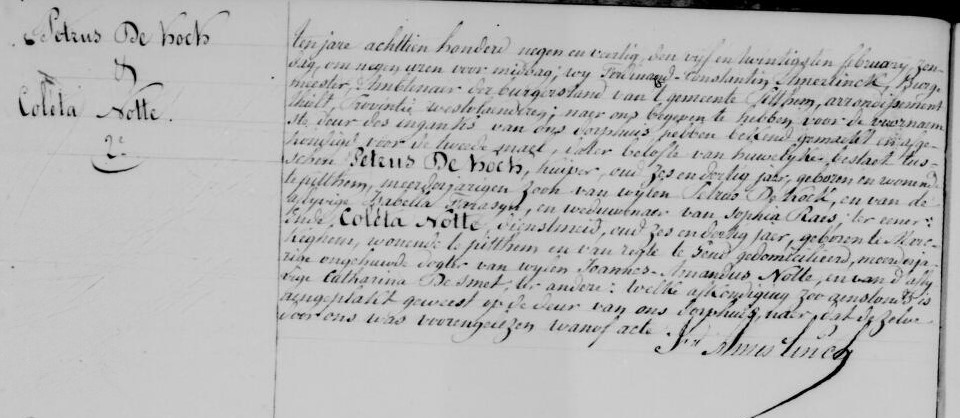 Petrus De Kock
&
Coleta Notte.
2e
ten jare achttien honderd negen en veertig, den vijf en twintigsten february, zon-
dag, om negen uren voor middag; wy Ferdinand-Constantin Amerlinck, Burge
meester, Ambtenaer der burgerstand van 't gemeente Pitthem, arrondissement
thielt, provintie westvlaenderen; naer ons begeven te hebben voor de voornaem
ste deur des ingangs van ons dorphuis hebben bekend gemaekt en afge-
kondigd voor de tweede mael, dat er belofte van huwelyk bestaet tus-
schen Petrus De Kock, kuiper, oud zes en dertig jaer, geboren en wonende
te pitthem, meerderjarigen zoon van wylen Petrus De Kock, en van de
alyvige Isabella, en weduwenaer van Sophia Raes; ter eener:
Ende Coleta Notte, dienstmeid, oud zes en dertig jaer, geboren te More-
keghem, wonende te pitthem en van regte te gedomicilieerd, meerderja-
rige ongehuwde dogter van wylen Joannes-Amandus Notte, en van d'aly
vige Catharina De Smet, ter andere: welke afkondiging zoo aenstonds is
aengeplakt geweest op de deur van ons dorphuis, naer dat de zelve
door ons was voorengelezen waerof acte
Fd Amerlinck